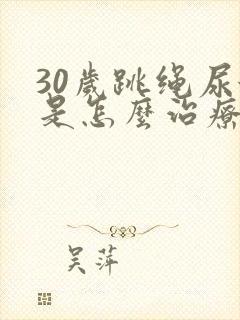 30歲跳绳尿
是怎麼治療
吴萍